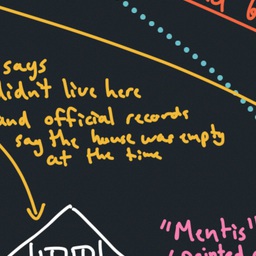 says
didn't live here
and official records
say the house was empty
at the time
"Mentis"